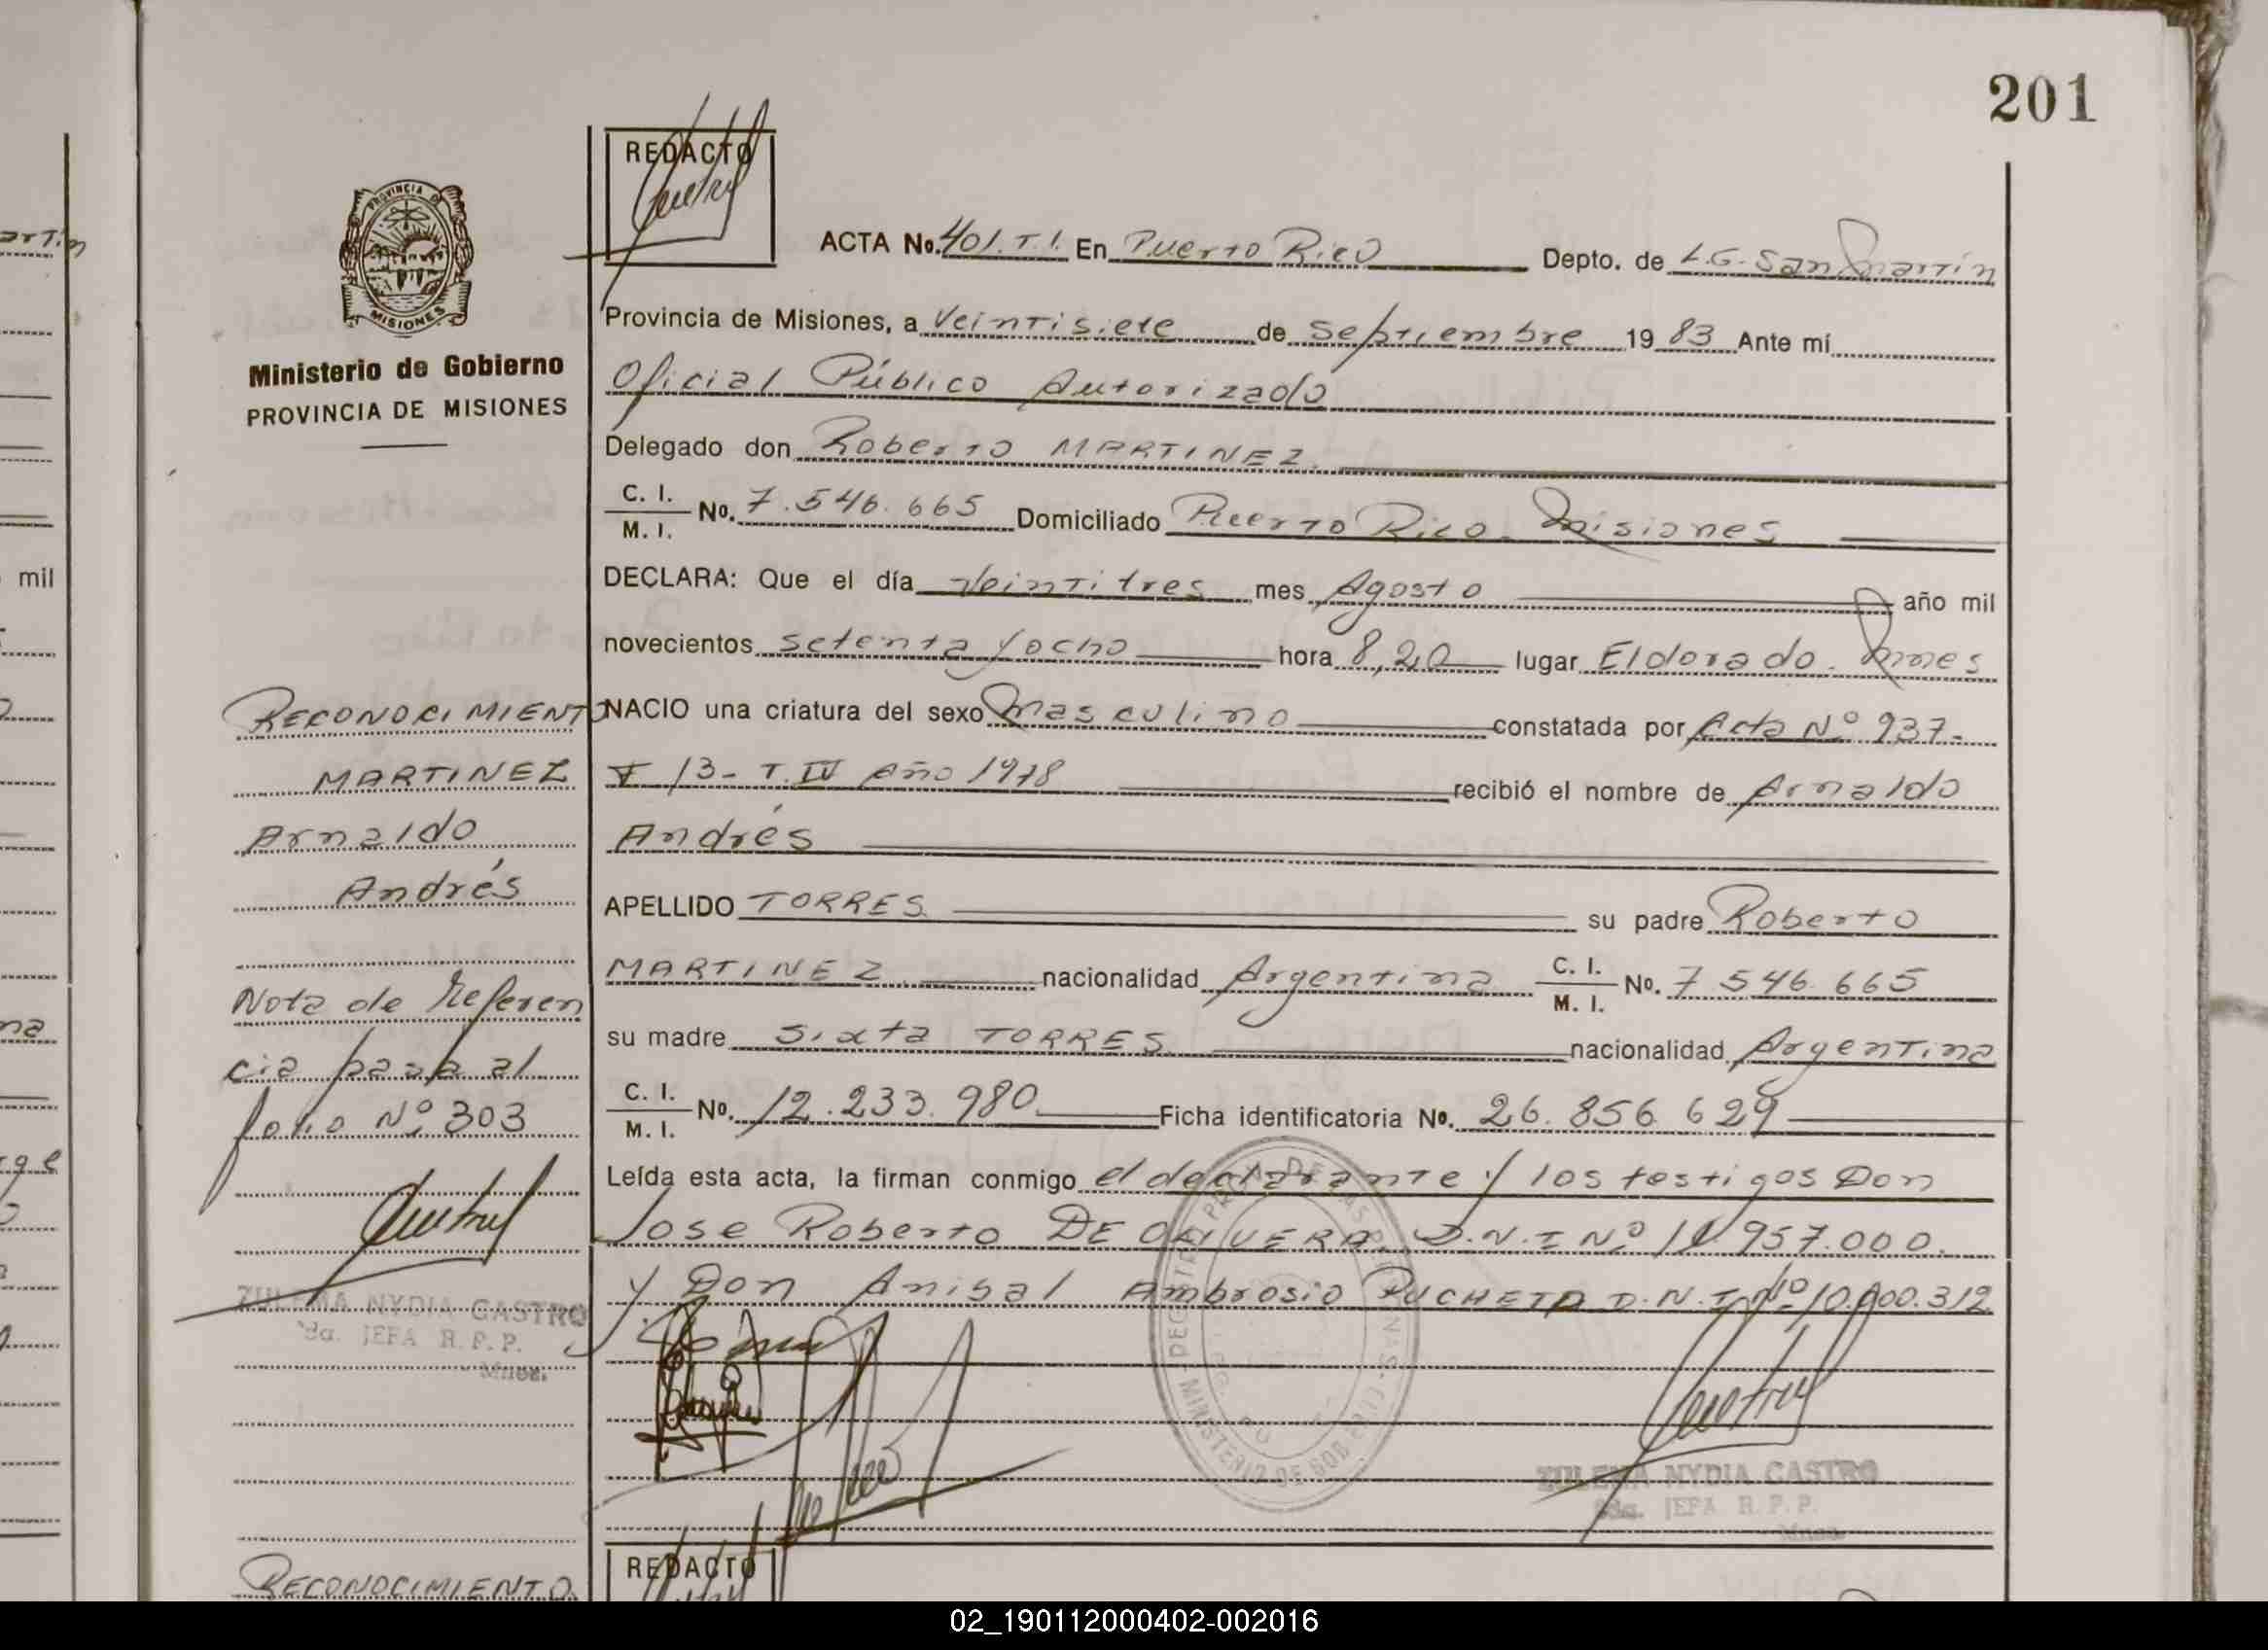 201
REDACTO
ACTA No. 401. T.I. En Puerto Rico Depto. de L.G. San Martín
PROVINCIA D
MISIONES
Ministerio de Gobierno
PROVINCIA DE MISIONES
Provincia de Misiones, a Veintisiete de Septiembre 19 83 Ante mí
Oficial Público Autorizado
Delegado don Roberto MARTINEZ.
C. I.
M. I. No. 7.546.665 Domiciliado Puerto Rico. Misiones
DECLARA: Que el día Veintitres mes Agosto año mil
novecientos setenta y ocho hora 8,20 lugar Eldorado. Mnes
NACIO una criatura del sexo Masculino constatada por Acta Nº 937-
F 13- T. IV Año 1978 recibió el nombre de Arnaldo
Andrés
APELLIDO TORRES su padre Roberto
MARTINEZ nacionalidad Argentina C. I.
M. I. No. 7 546 665
su madre Sixta TORRES nacionalidad Argentina
C. I.
M. I. No. 12.233.980 Ficha identificatoria No. 26.856.629
Leída esta acta, la firman conmigo el declarante y los testigos Don
Jose Roberto DE OLIVERA. D.N.I Nº 957.000.
y Don Anibal Ambrosio PUCHETA D.N.I Nº 10.000.312
RECONOCIMIENTO
MARTINEZ
Arnaldo
Andrés
Nota de Referen
cia pasa al
folio Nº 303
ZULEMA NYDIA CASTRO
JEFA R. P. P.
Mnes.
MINISTERIO DE GOB
ZULEMA NYDIA CASTRO
JEFA R. P. P.
Mnes.
REDACTO
RECONOCIMIENTO
artín
mil
02_190112000402-002016